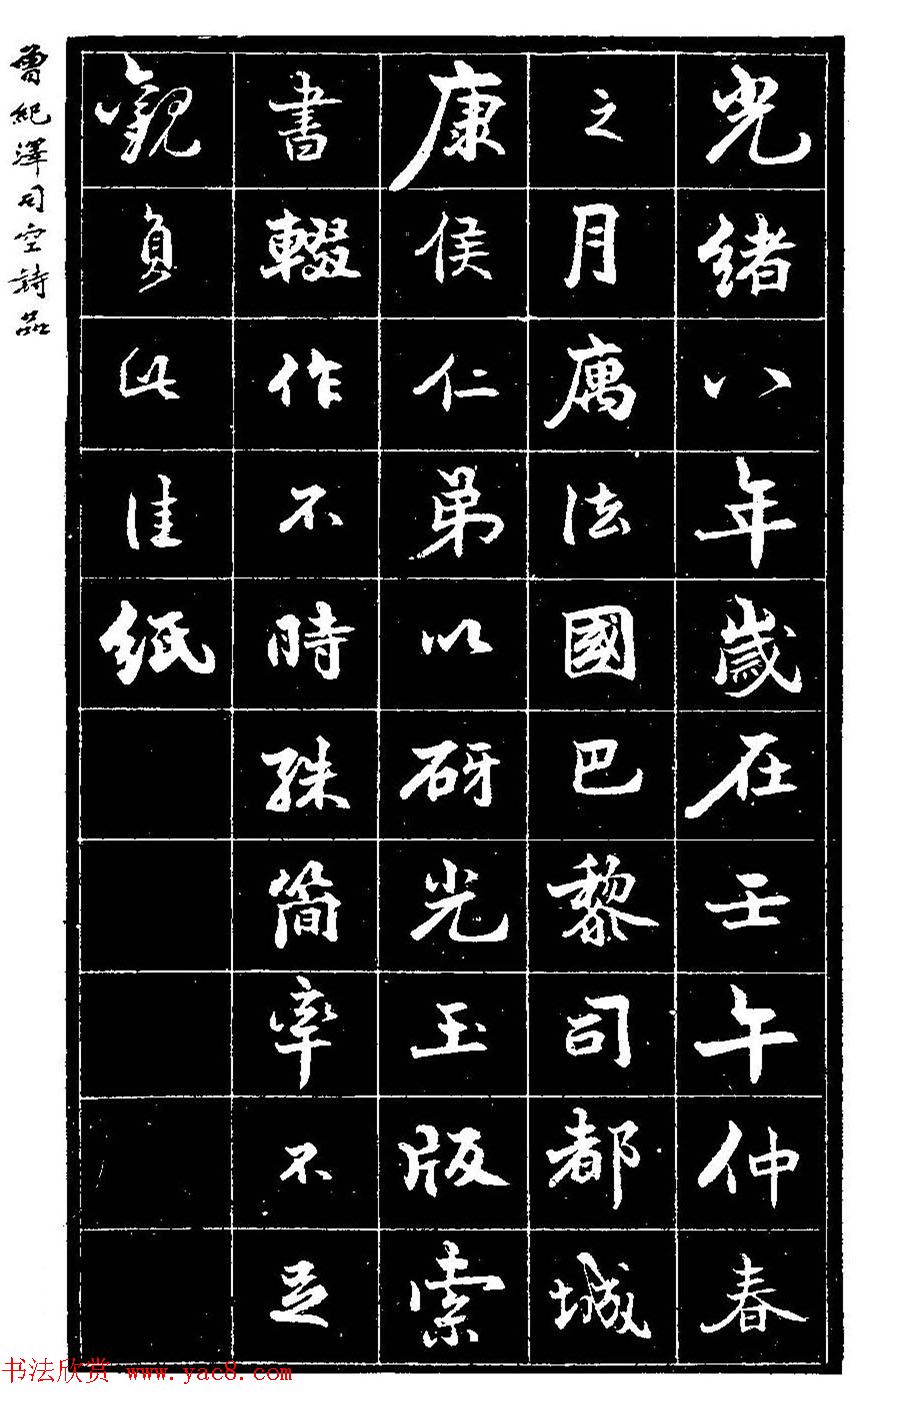 光緒八年歲在壬午仲春
之月寓法國巴黎司都城
康侯仁弟以砑光玉版索
書輟作不時殊簡率不足
觀負此佳紙
曾紀澤司空詩品
书法欣赏 www.yac8.com